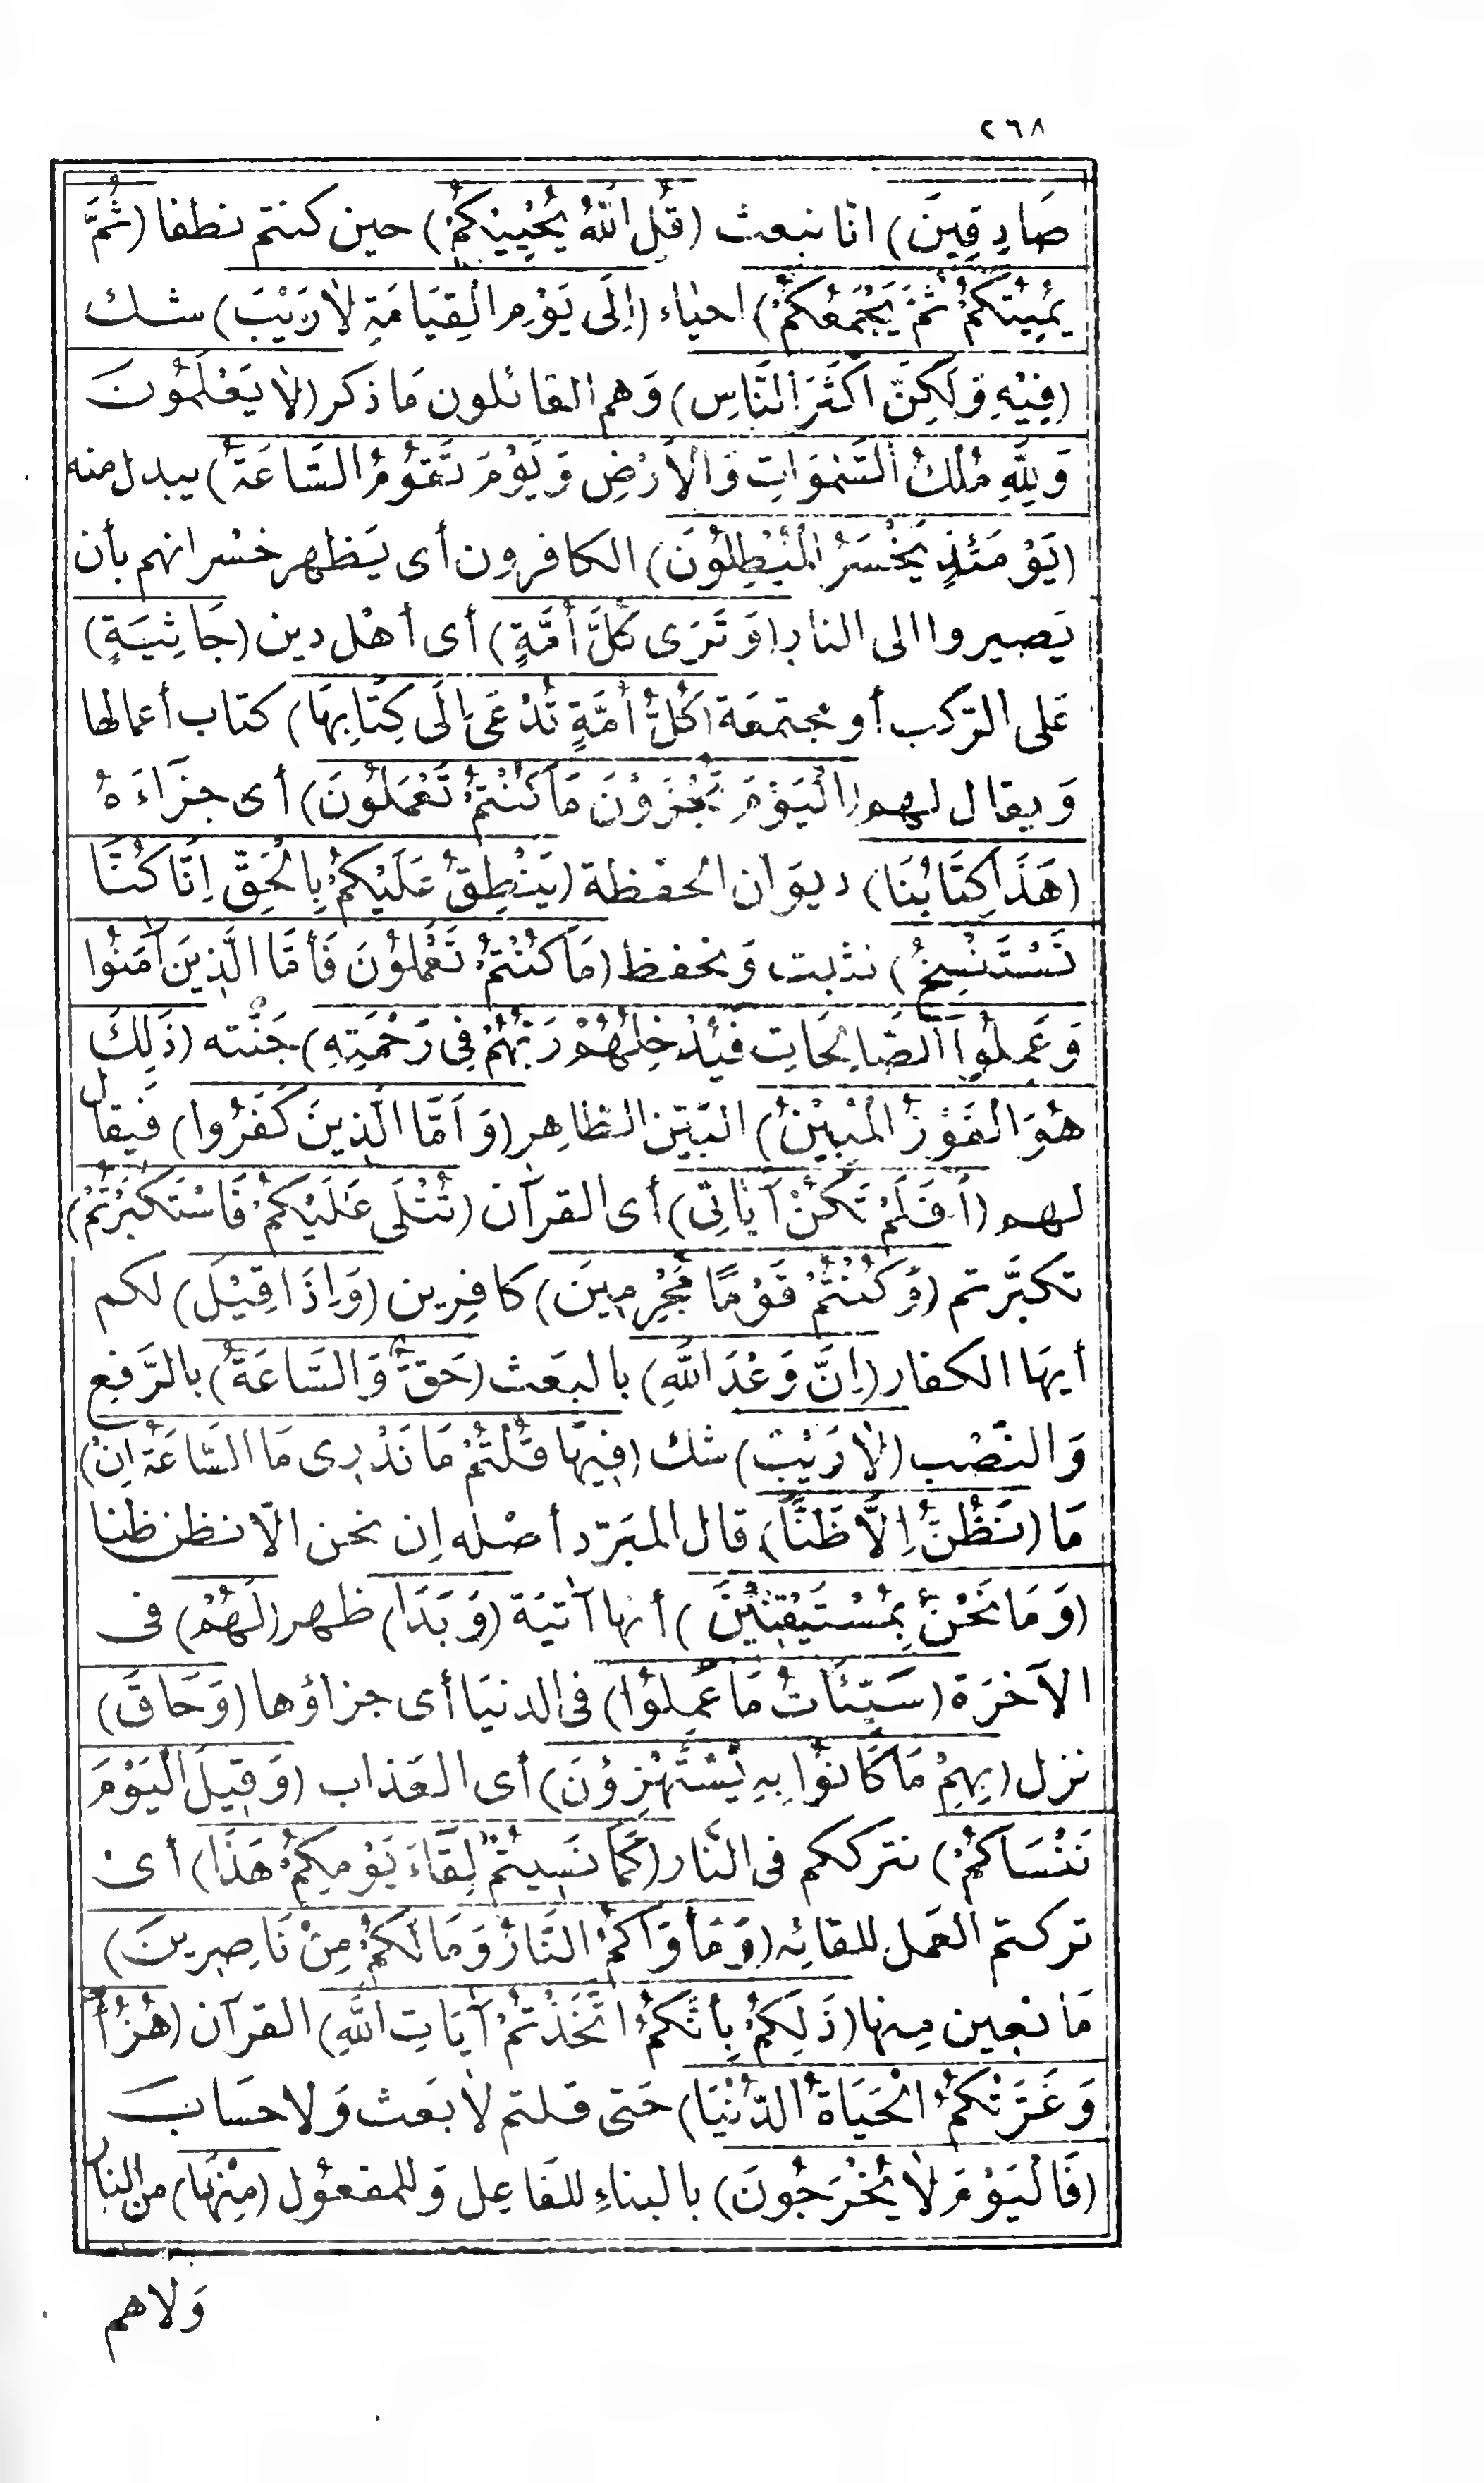 ٢٦٨
صَادِقِينَ) انا نبعث (قُلِ اللَّهُ يُحْيِيكُمْ) حين كنتم نطفا (ثُمَّ
يُمِيتُكُمْ ثُمَّ يَجْمَعُكُمْ) احياء (إِلَى يَوْمِ الْقِيَامَةِ لَا رَيْبَ) شك
(فِيْهِ وَلَكِنَّ أَكْثَرَ النَّاسِ) وَهم القائلون مَا ذكر (لَا يَعْلَمُونَ
وَلِلَّهِ مُلْكُ السَّمَوَاتِ وَالْأَرْضِ وَيَوْمَ تَقُوْمُ السَّاعَةُ) يبدل منه
(يَوْمَئِذٍ يَخْسَرُ الْمُبْطِلُوْنَ) الكافرون أى يَظهر خسْرانهم بأن
يَصيروا الى النار (وَتَرَى كُلَّ أُمَّةٍ) أى أهْل دين (جَاثِيَةٍ)
عَلى الرّكب أو مجتمعَة (كُلُّ أُمَّةٍ تُدْعَى إِلَى كِتَابِهَا) كتاب أعمالها
وَيقال لهم (الْيَوْمَ تُجْزَوْنَ مَا كُنْتُمْ تَعْمَلُوْنَ) أى جزَآءَهُ
(هَذَا كِتَابُنَا) ديوَان الحفظة (يَنْطِقُ عَلَيْكُمْ بِالْحَقِّ إِنَّا كُنَّا
نَسْتَنْسِخُ) نثبت وَنحفظ (مَا كُنْتُمْ تَعْمَلُوْنَ فَأَمَّا الَّذِينَ آمَنُوا
وَعَمِلُوا الصَّالِحَاتِ فَيُدْخِلُهُمْ رَبُّهُمْ فِى رَحْمَتِهِ) جَنَّته (ذَلِكَ
هُوَ الْفَوْزُ الْمُبِيْنُ) البَيّن الظاهِر (وَأَمَّا الَّذِينَ كَفَرُوا) فَيقال
لهم (أَفَلَمْ تَكُنْ آيَاتِى) أى القرآن (تُتْلَى عَلَيْكُمْ فَاسْتَكْبَرْتُمْ)
تكبَّرتم (وَكُنْتُمْ قَوْمًا مُجْرِمِينَ) كافِرِين (وَإِذَا قِيْلَ) لكم
أيهَا الكفار (إِنَّ وَعْدَ اللَّهِ) بالبَعَث (حَقٌّ وَالسَّاعَةُ) بالرَّفع
وَالنصْب (لَا رَيْبَ) شك (فِيهَا قُلْتُمْ مَا نَدْرِى مَا السَّاعَةُ إِنْ)
مَا (نَظُنُّ إِلَّا ظَنًّا) قال المبَرّد أصْله إن نحن الّا نظن ظنا
(وَمَا نَحْنُ بِمُسْتَيْقِنِيْنَ) أنها آتيَة (وَبَدَا) ظهر (لَهُمْ) فى
الآخرَة (سَيِّئَاتُ مَا عَمِلُوْا) فى الدنيَا أى جزاؤها (وَحَاقَ)
نزل (بِهِمْ مَا كَانُوْا بِهِ يَسْتَهْزِؤُنَ) أى العَذاب (وَقِيلَ الْيَوْمَ
نَنْسَاكُمْ) نترككم فى النار (كَمَا نَسِيتُمْ لِقَاءَ يَوْمِكُمْ هَذَا) أى
تركتم العَمل للقائِه (وَمَأْوَاكُمُ النَّارُ وَمَا لَكُمْ مِنْ نَاصِرِينَ)
مَانعِين مِنها (ذَلِكُمْ بِأَنَّكُمُ اتَّخَذْتُمْ آيَاتِ اللَّهِ) القرآن (هُزُؤًا
وَغَرَّتْكُمُ الْحَيَاةُ الدُّنْيَا) حَتى قلتم لا بَعَث وَلا حسَاب
(فَالْيَوْمَ لَا يُخْرَجُونَ) بالبناءِ للفَاعِل وَللمفعُول (مِنْهَا) من النار
وَلاهم